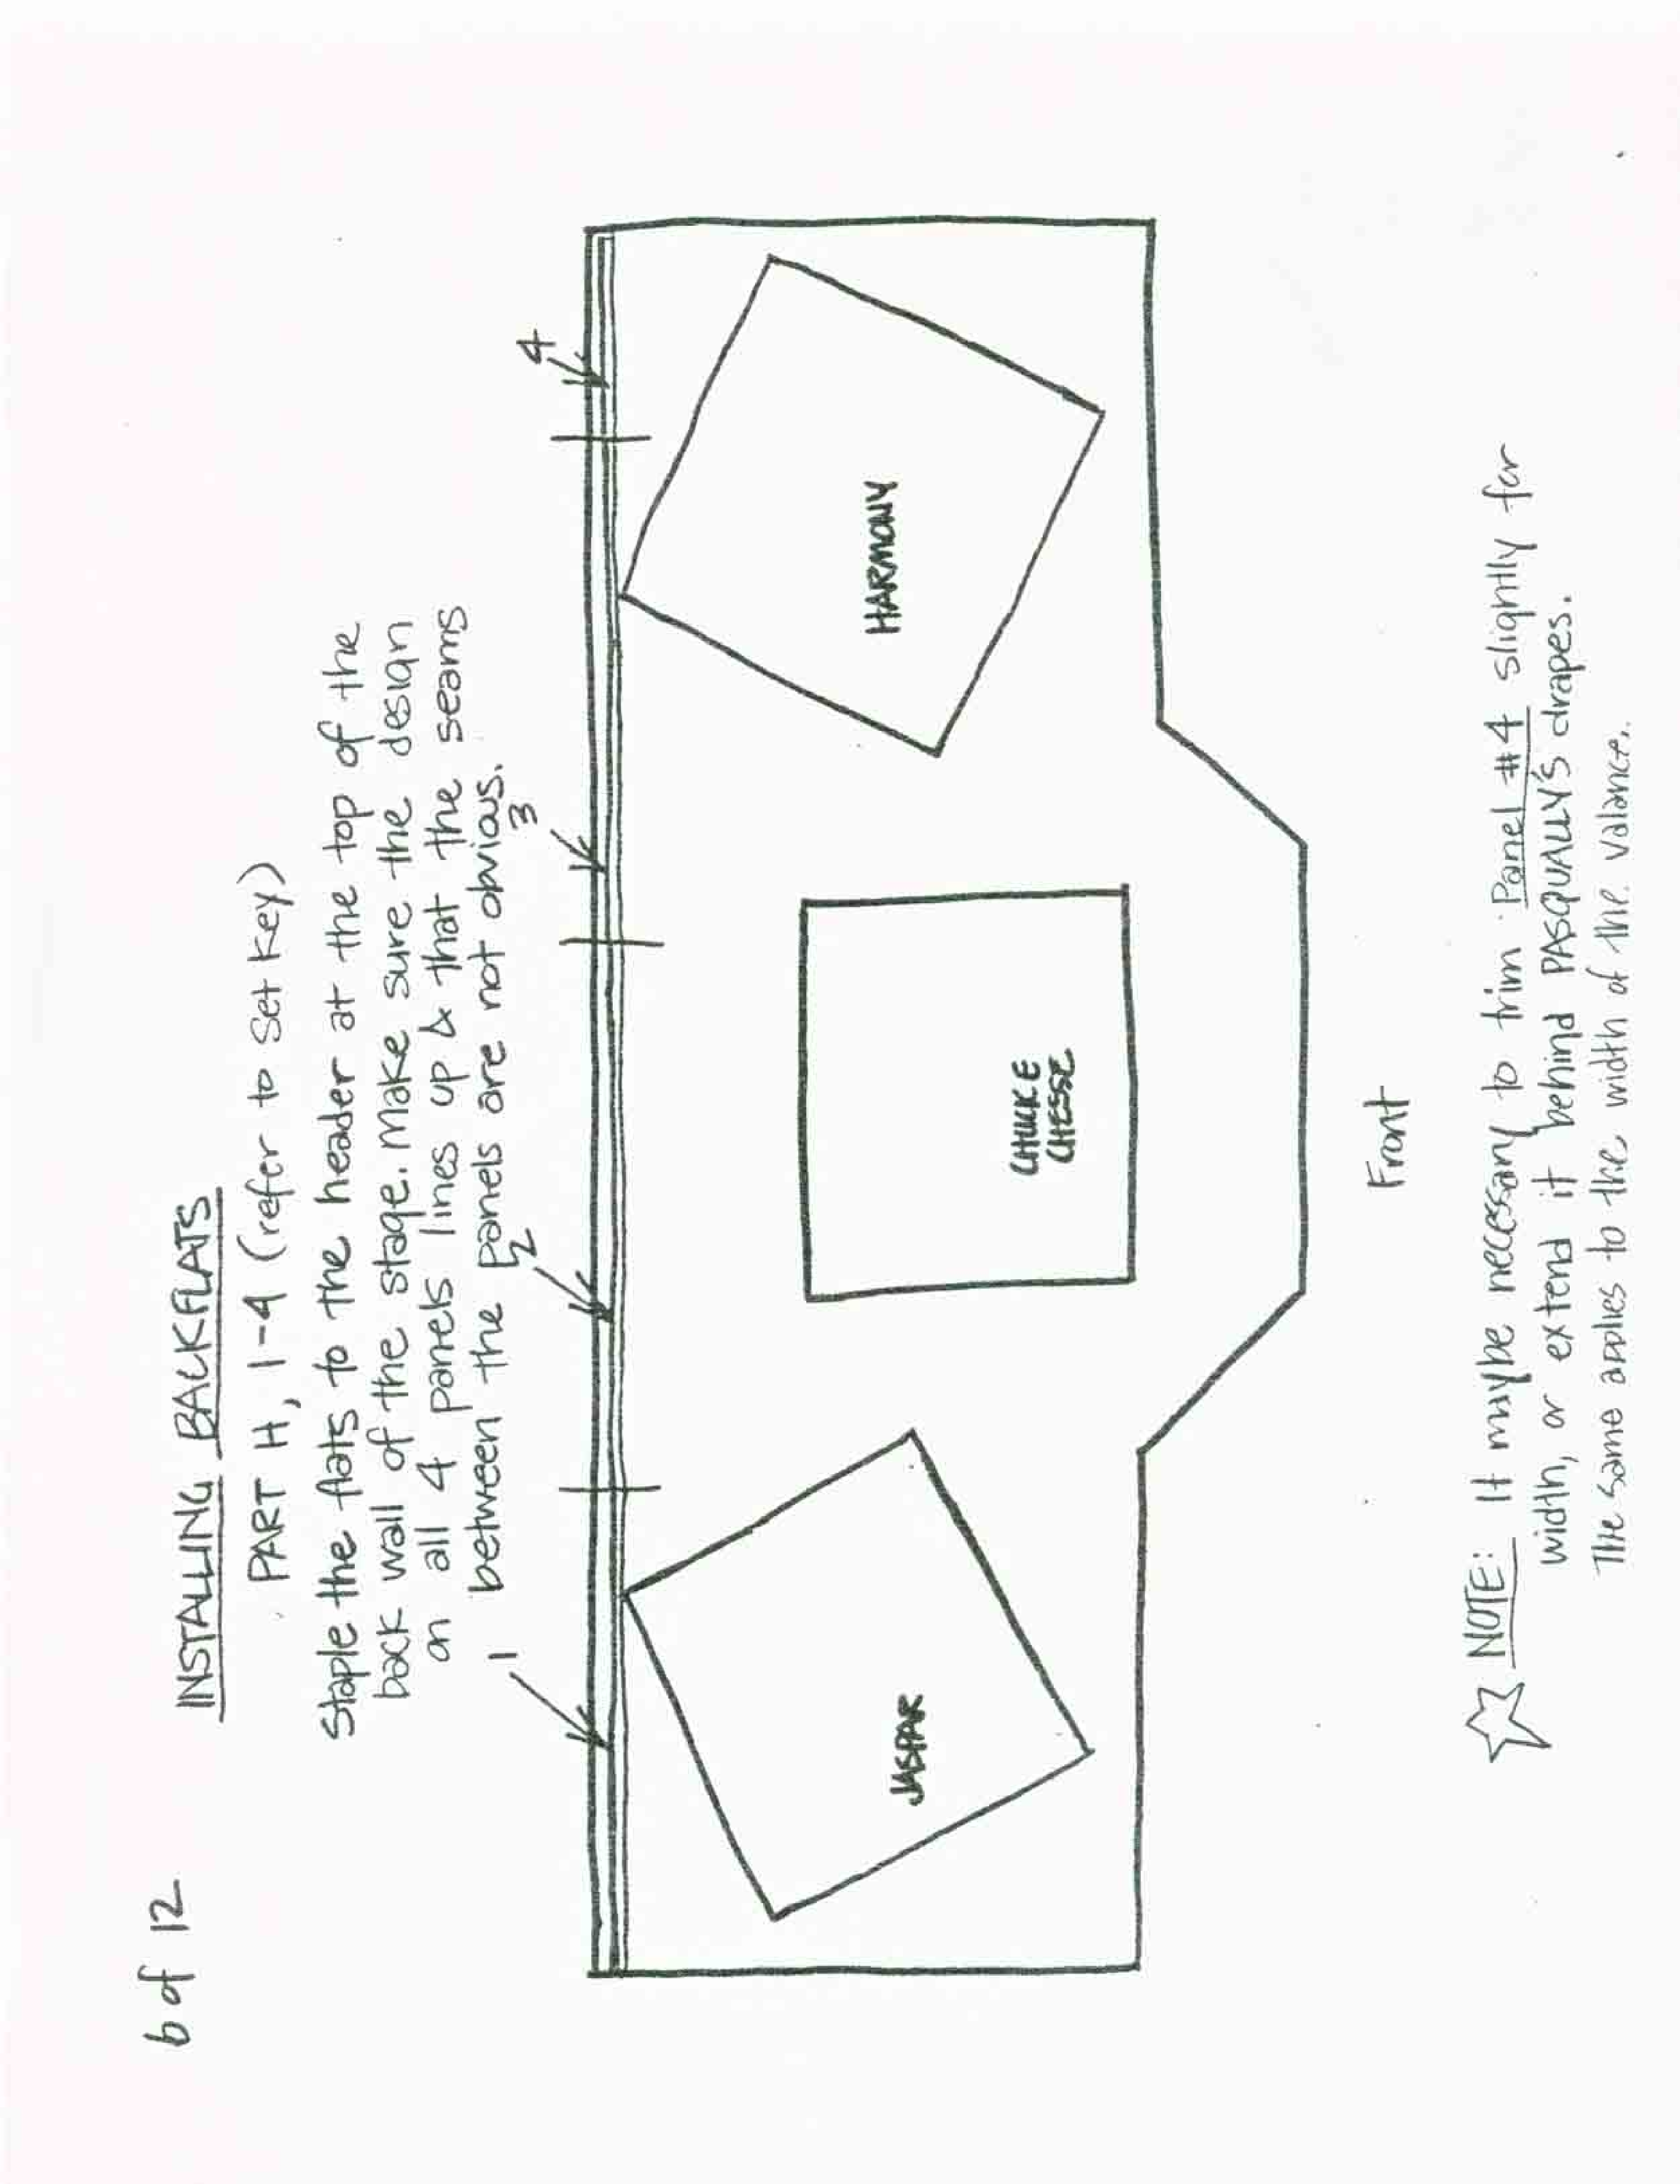 6 of 12
INSTALLING BACKFLATS
PART H, 1-4 (refer to set key)
Staple the flats to the header at the top of the
back wall of the stage. Make sure the design
on all 4 panels lines up & that the seams
between the panels are not obvious.
1
2
3
4
JASPAR
CHUCK E
CHESSE
HARMONY
Front
NOTE: It maybe necessary to trim Panel #4 slightly for
width, or extend it behind PASQUALLY'S drapes.
The same applies to the width of the valance.